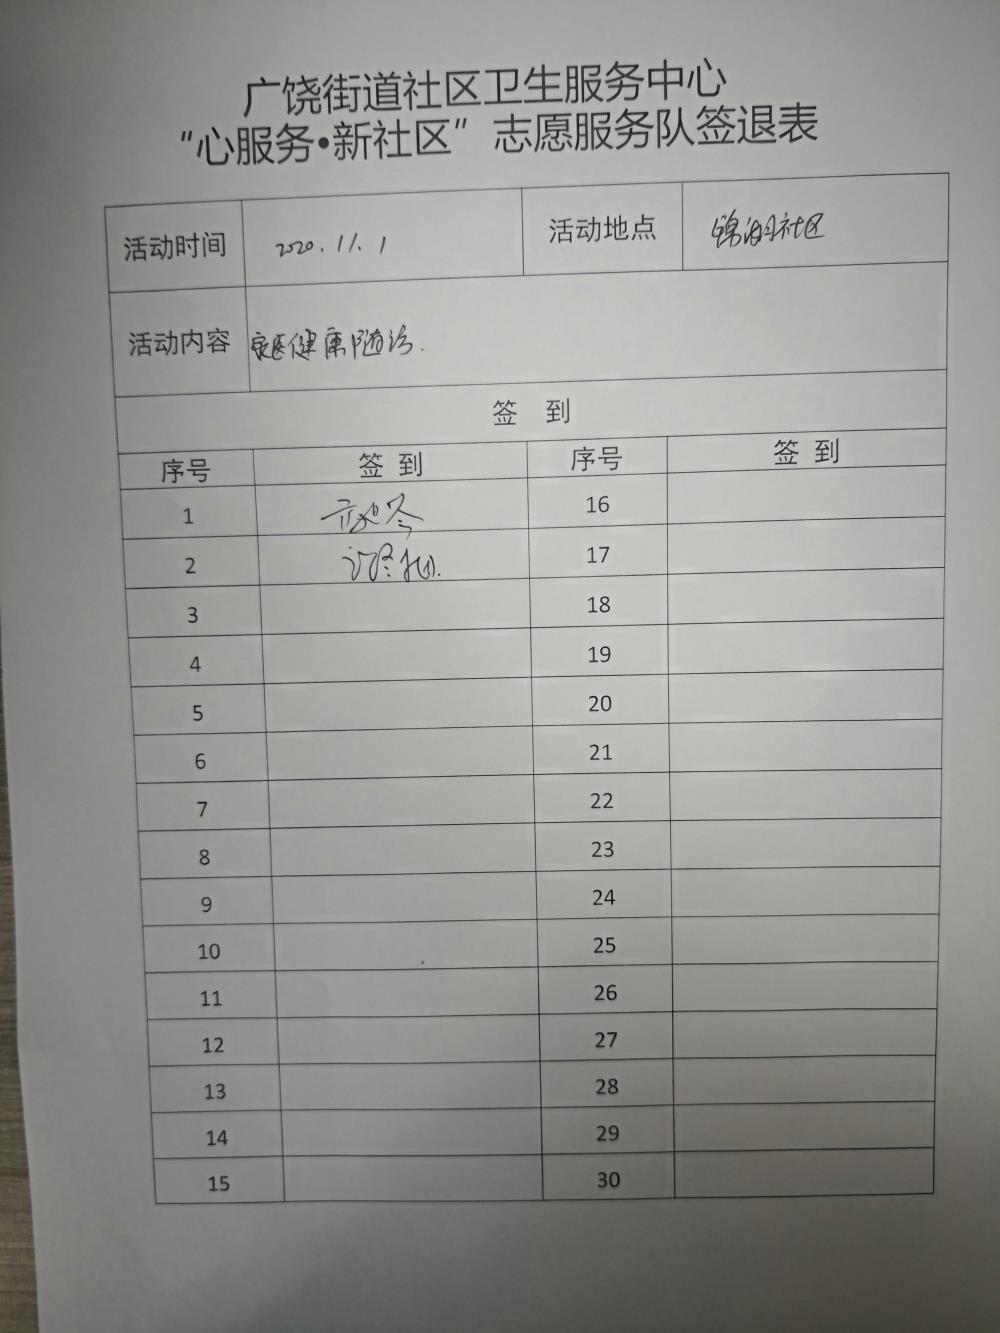 广饶街道社区卫生服务中心
“心服务•新社区”志愿服务队签退表
活动时间 2020.11.1 活动地点 锦湖社区
活动内容 家医健康随访.
签 到
序号 签 到 序号 签 到
1 16
2 17
3 18
4 19
5 20
6 21
7 22
8 23
9 24
10 25
11 26
12 27
13 28
14 29
15 30